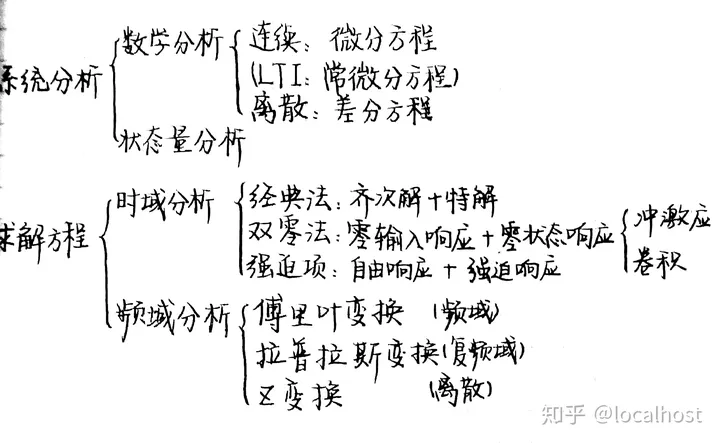 系统分析
数学分析
连续：微分方程
(LTI：常微分方程)
离散：差分方程
状态量分析
求解方程
时域分析
经典法：齐次解+特解
双零法：零输入响应+零状态响应
冲激应
卷积
强迫项：自由响应+强迫响应
频域分析
傅里叶变换 (频域)
拉普拉斯变换(复频域)
Z变换 (离散)
知乎 @localhost